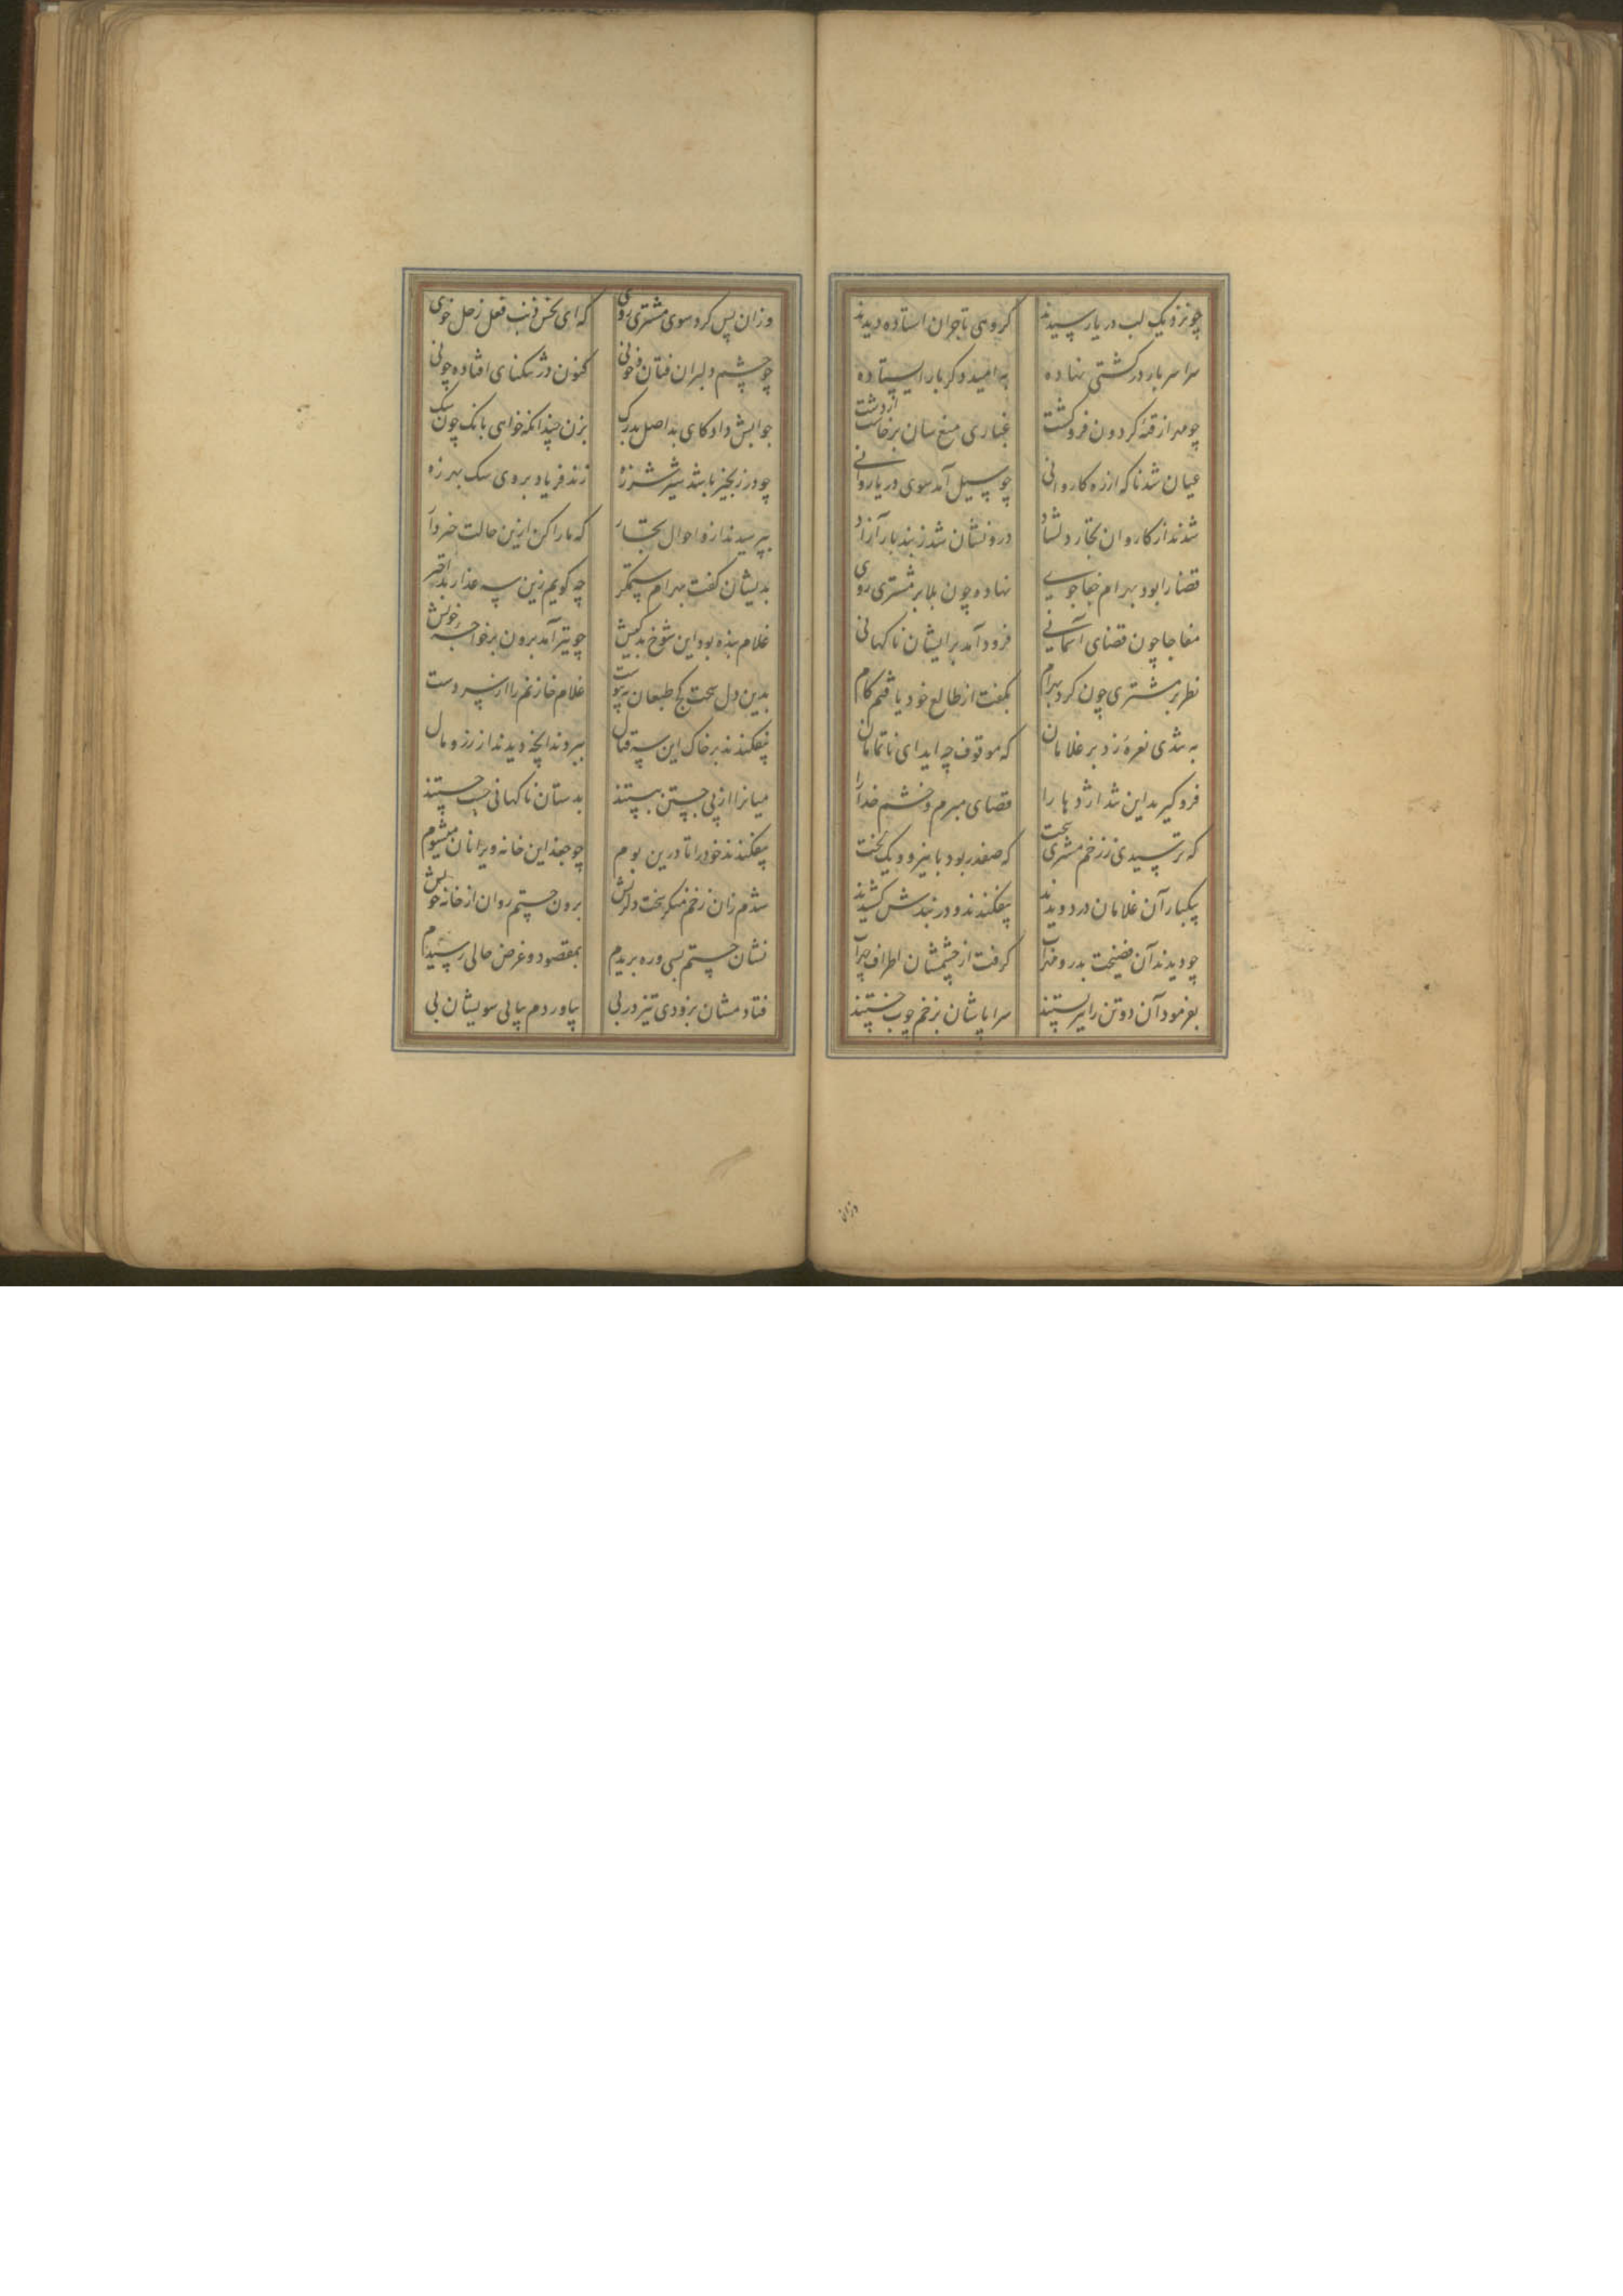 چو نزدیک لب دریا رسیدند گروهی تاجران استاده دیدند
سراسر بار در کشتی نهاده به امید دگر بار ایستاده
چو مهر از قبه گردون فرو گشت غباری میغ سان برخاست از دشت
عیان شد ناکه از ره کاروانی چو سیل آمد سوی دریا روانی
شدند از کاروان تجار دلشاد درونشان شد ز بند بار آزاد
قضا را بود بهرام جفاجوی نهاده چون بلا بر مشتری روی
مفاجا چون قضای آسمانی فرود آمد بر ایشان ناکهانی
نظر بر مشتری چون کرد بهرام بگفت از طالع خود یافتم کام
به تندی نعره زد بر غلامان که موقوف چه اید ای ناتمامان
فرو گیرید این تند اژدها را قضای مبرم و خشم خدا را
که ترسیدی ز زخم مشتری سخت که صفدر بود با نیرو و یک لخت
بیکبار آن غلامان در دویدند بیفکندند و در بندش کشیدند
چو دیدند آن فضیحت بدر و مهراب گرفت از چشمشان اطراف
بفرمود آن دو تن را نیز بستند سراپاشان بزخم چوب خستند
وزان
وزان پس کرد سوی مشتری روی که ای نحس ذنب فعل زحل خوی
چو چشم دلبران فتان و خونی کنون در تنکنای افتاده چونی
جوابش داد کای بد اصل بدرک بزن چندانکه خواهی بانک چون سک
چو در زنجیر باشد شیر شرزه زند فریاد بر وی سک بهرزه
بپرسیدند ازو احوال تجار که ما را کن ازین حالت خبردار
بدیشان گفت بهرام ستمگر چه گویم زین سیه عذار بد اختر
غلام بنده بود این شوخ بدکیش چو تیر آمد برون بر خواجه خویش
بدین دل سخت کج طبعان بپیوست غلام خازنم را از سر دست
بیفکندند بر خاک این سه قتال ببردند آنچه دیدند از زر و مال
میان را از پی جستن ببستند بدستان ناکهانی جستند
بیفکندند خود را تا درین بوم چو جغد این خانه ویرانان میشوم
شدم زان زخم منکر سخت دلریش برون جستم روان از خانه خویش
نشان جستم بسی و ره بریدم بمقصود و غرض حالی رسیدم
فتادمشان بزودی تیز در پی بیاوردم پیاپی سویشان پی